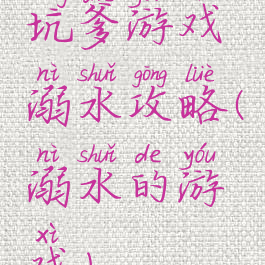 坑爹游戏
nì shuǐ gōng lüè
溺水攻略(
nì shuǐ de yóu
溺水的游
xì
戏)